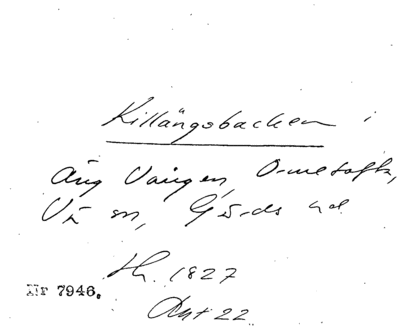 Killängsbacken i
äng Vången, Ometofta,
Vä sn, Gärds hd
Lh. 1827
Akt 22
Nr 7946.